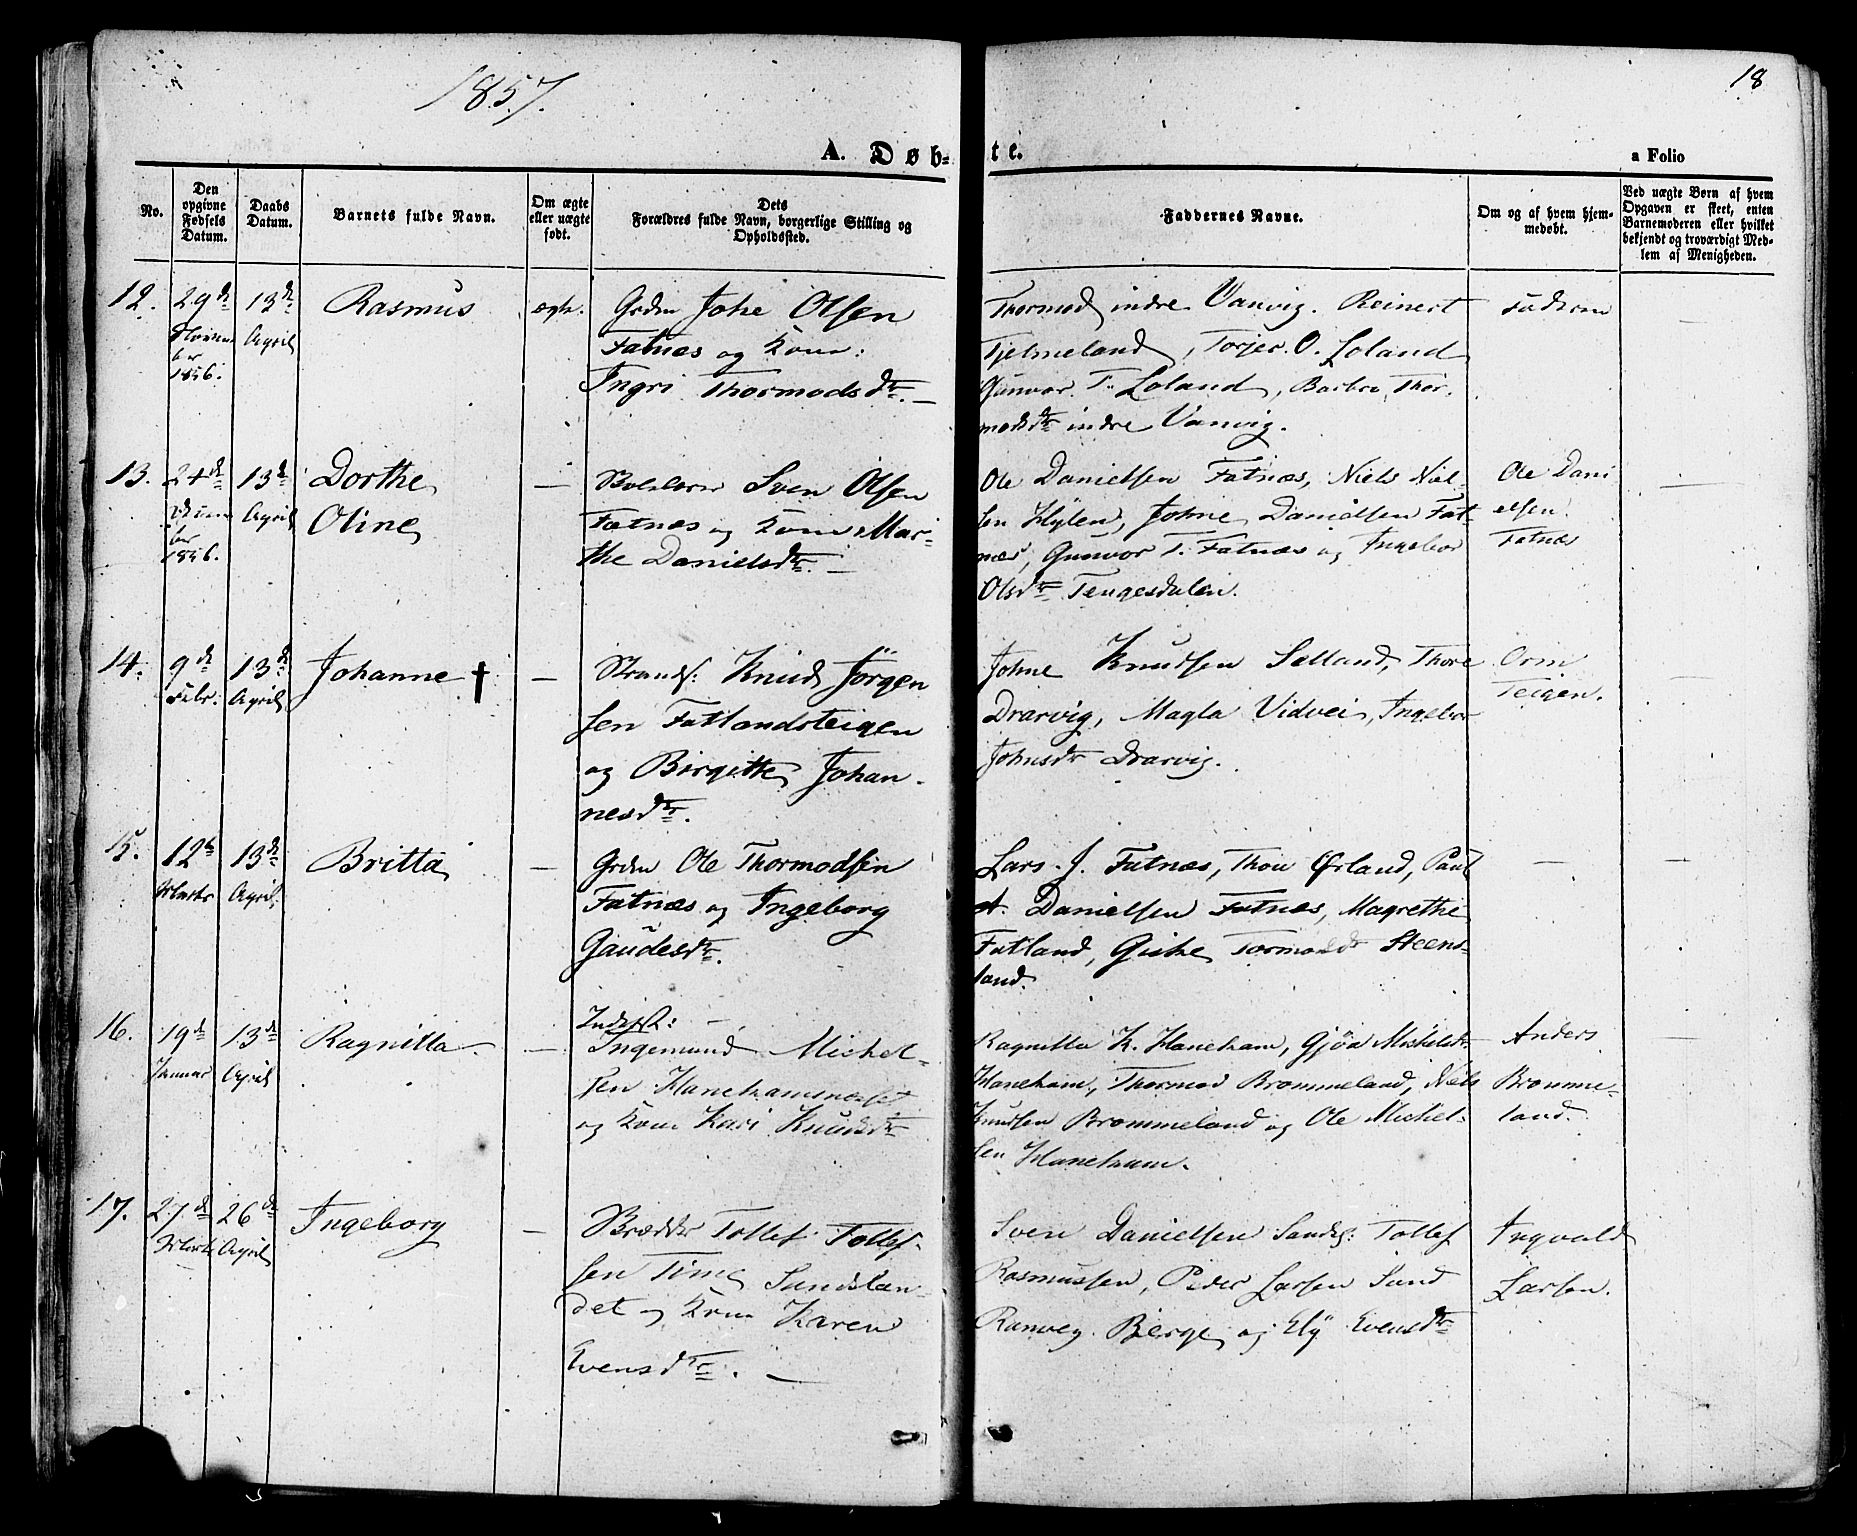 1857.
18
A. Døb-
te.
a Folio
No.
Den
opgivne
Fødsels
Datum.
Daabs
Datum.
Barnets fulde Navn.
Om ægte
eller uægte
født.
Dets
Forældres fulde Navn, borgerlige Stilling og
Opholdssted.
Faddernes Navne.
Om og af hvem hjem-
medøbt.
Ved uægte Børn af hvem
Opgaven er skeet, enten
Barnemoderen eller hvilket
bekjendt og troværdigt Med-
lem af Menigheden.
12.
29de
Novem
ber
1856.
13de
April
Rasmus
ægte.
Grdm Johe Olsen
Fatnæs og Kone:
Ingri Thormodsdtr. —
Thormod indre Vanvig. Reinert
Tjelmeland, Torjer. O. Loland
Gunvor. T. Loland, Barbra Thor-
modsdtr indre Vanvig.
Faderen
—
13.
24de
1856.
13de
April
Dorthe
Oline
—
Sven Olsen
Fatnæs og Kone Mar-
the Danielsdtr. —
Ole Danielsen Fatnæs, Niels Niel-
sen Hylen, Johne Danielsen Fat-
næs, Gunvor T. Fatnæs og Ingebor
Olsdtr Tengesdalen.
Ole Dani
elsen
Fatnæs
—
14.
9de
Febr.
13de
April
Johanne †
—
Strands: Knud Jörgen
sen Fatlandsteigen
og Birgitte Johan-
nesdtr.
Johne Knudsen Selland, Thore
Drarvig, Magla Vidvei, Ingebor
Johnsdtr Drarvig.
Orm
Teigen.
15.
12te
Marts
13de
April
Britta
—
Grdm Ole Thormodsen
Fatnæs og Ingeborg
Gaudesdtr.
Lars. J. Fatnæs, Thou Ørland, Paul
A. Danielsen Fatnæs, Magrethe
Fatland, Tormodsdtr Steens-
land.
—
—
16.
19de
Januar
13de
April
Ragnilla
—
Inders: —
Ingemund Michel-
sen Hanehamsnæset
og Kone Kari Knudsdtr
Ragnilla K. Haneham, Gjöa Mickelsdtr
Haneham, Thormod Brommeland, Niels
Knudsen Brommeland og Ole Michel-
sen Haneham.
Anders
Bromme-
land.
—
17.
27de
Marts
26de
April
Ingeborg
—
Tollef Tollef-
sen Time Sandslan-
det og Kone Karen
Evensdtr. —
Sven Danielsen Sands: Tollef
Rasmussen, Peder Larsen Sand
Ranveg Berge og Ely Evensdtr
Ingvald
Larsen.